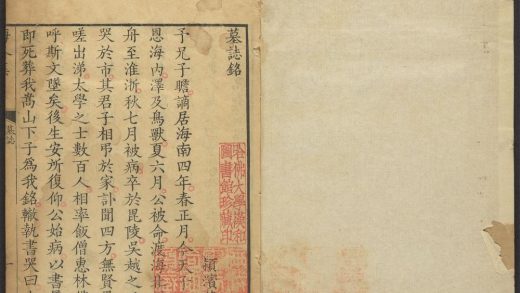 墓誌銘
潁濱
予兄子瞻謫居海南四年春正月今天子
恩海內澤及鳥獸夏六月公被命渡海北
舟至淮浙秋七月被病卒於毘陵吳越之
哭於市其君子相弔於家訃聞四方無賢
嗟出涕太學之士數百人相率飯僧惠林
呼斯文墜矣後生安所復仰公始病以書
即死葬我嵩山下子為我銘轍執書哭曰
墓誌
一
哈佛大學漢和
圖書館珍藏印